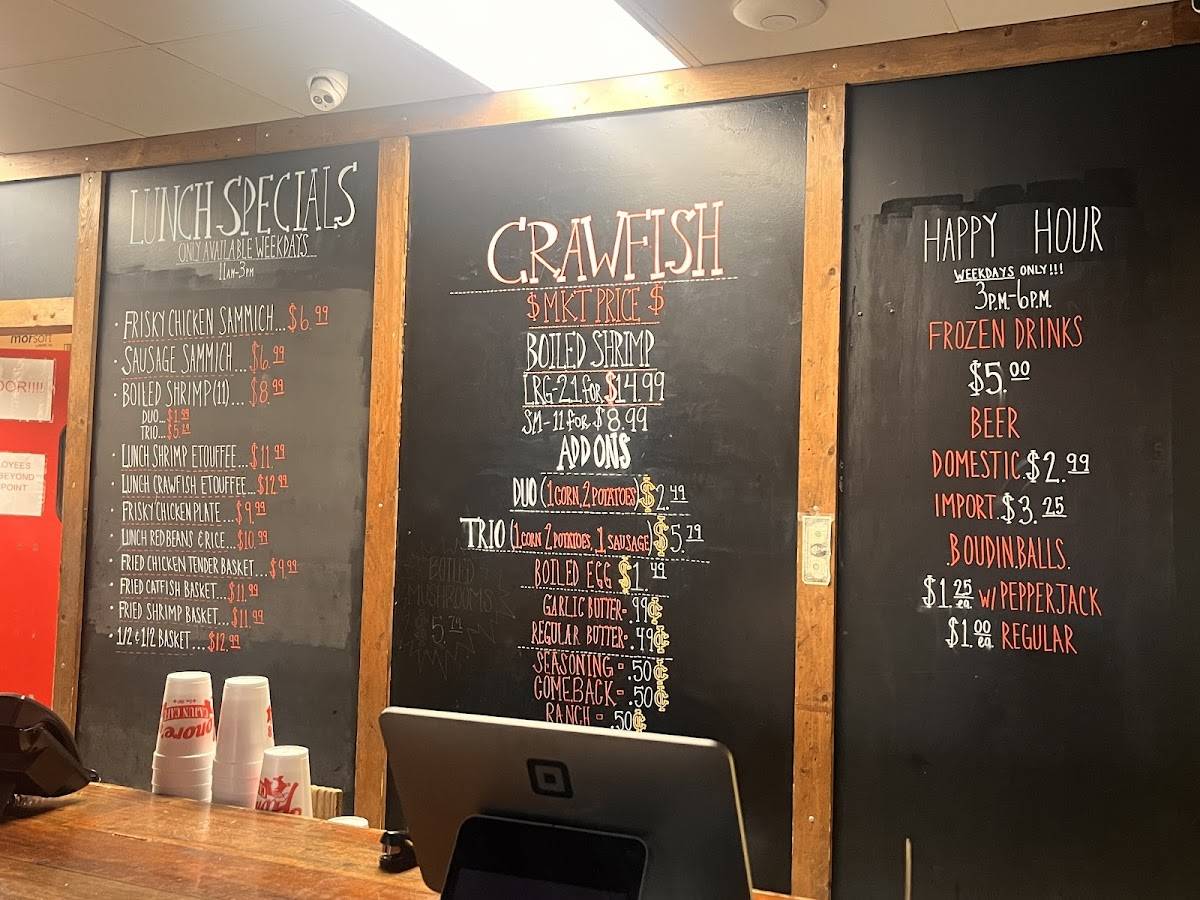 LUNCH SPECIALS
ONLY AVAILABLE WEEKDAYS
11AM-3PM
· FRISKY CHICKEN SAMMICH...$6.99
· SAUSAGE SAMMICH...$6.99
· BOILED SHRIMP(11)...$8.99
DUO...$1.99
TRIO...$5.29
· LUNCH SHRIMP ETOUFFEE...$11.99
· LUNCH CRAWFISH ETOUFFEE...$12.99
· FRISKY CHICKEN PLATE...$9.99
· LUNCH RED BEANS & RICE...$10.99
· FRIED CHICKEN TENDER BASKET...$9.99
· FRIED CATFISH BASKET...$11.99
· FRIED SHRIMP BASKET...$11.99
· 1/2 & 1/2 BASKET...$12.99
CRAWFISH
$ MKT PRICE $
BOILED SHRIMP
LRG-21 for $14.99
SM-11 for $8.99
ADD ONS
DUO (1 CORN, 2 POTATOES) $2.49
TRIO (1 CORN 2 POTATOES, 1 SAUSAGE) $5.79
BOILED EGG $1.49
GARLIC BUTTER-.99¢
REGULAR BUTTER-.49¢
SEASONING-.50¢
COMEBACK-.50¢
RANCH-.50¢
BOILED
MUSHROOMS
$5.79
HAPPY HOUR
WEEKDAYS ONLY!!!
3P.M-6P.M
FROZEN DRINKS
$5.00
BEER
DOMESTIC.$2.99
IMPORT.$3.25
.BOUDIN.BALLS.
$1.25 ea W/ PEPPERJACK
$1.00 ea REGULAR
morsoft
OOR!!!!
LOYEES
BEYOND
POINT
CAJUN CAFE